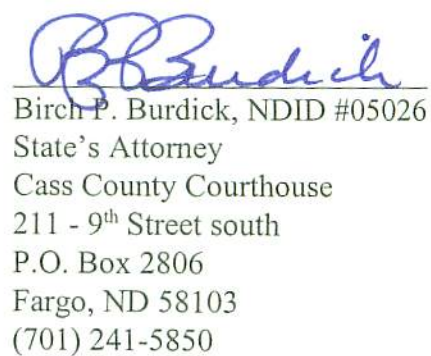 BP Burdick
Birch P. Burdick, NDID #05026
State's Attorney
Cass County Courthouse
211 - 9th Street south
P.O. Box 2806
Fargo, ND 58103
(701) 241-5850